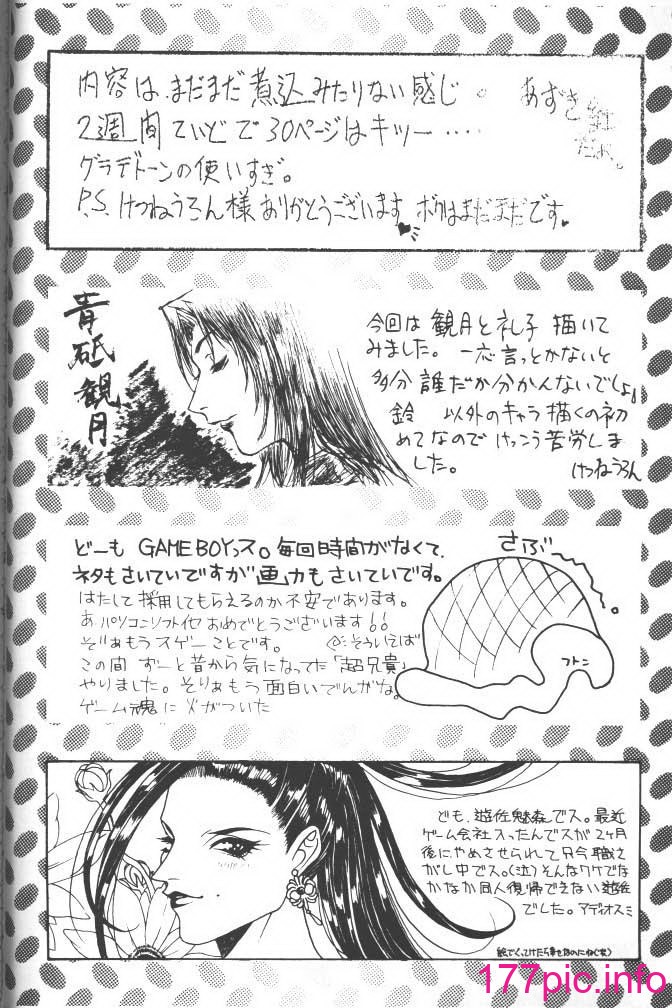 内容は、まだまだ煮込みたりない感じ。
2週間ていどで30ページはキツー‥‥
グラデトーンの使いすぎ。
P.S.けつねうろん様ありがとうございます ボクはまだまだです。
あずき
だよ。
青砥観月
今回は観月と礼子描いて
みました。一応言っとかないと
多分誰だか分かんないでしょ。
鈴 以外のキャラ描くの初
めてなのでけっこう苦労しま
した。
けつねうろん
どーも GAMEBOYっス。毎回時間がなくて、
ネタもさいていですが画力もさいていです。
はたして採用してもらえるのか不安であります。
あ、パソコンソフトイセおめでとうございます!!
そりぁもうスゲーことです。
そういえば
この間 ずーと昔から気になってた「超兄貴」
やりました。そりぁもう面白いでんがな。
ゲーム魂に火がついた
さぶ〜
フトン
ども、遊佐魅森でス。最近
ゲーム会社入ったんでスが2ヶ月
後にやめさせられて只今職さ
がし中でス。(泣)そんなワケでな
かなか同人復帰できない遊佐
でした。アディオスミ
177pic.info